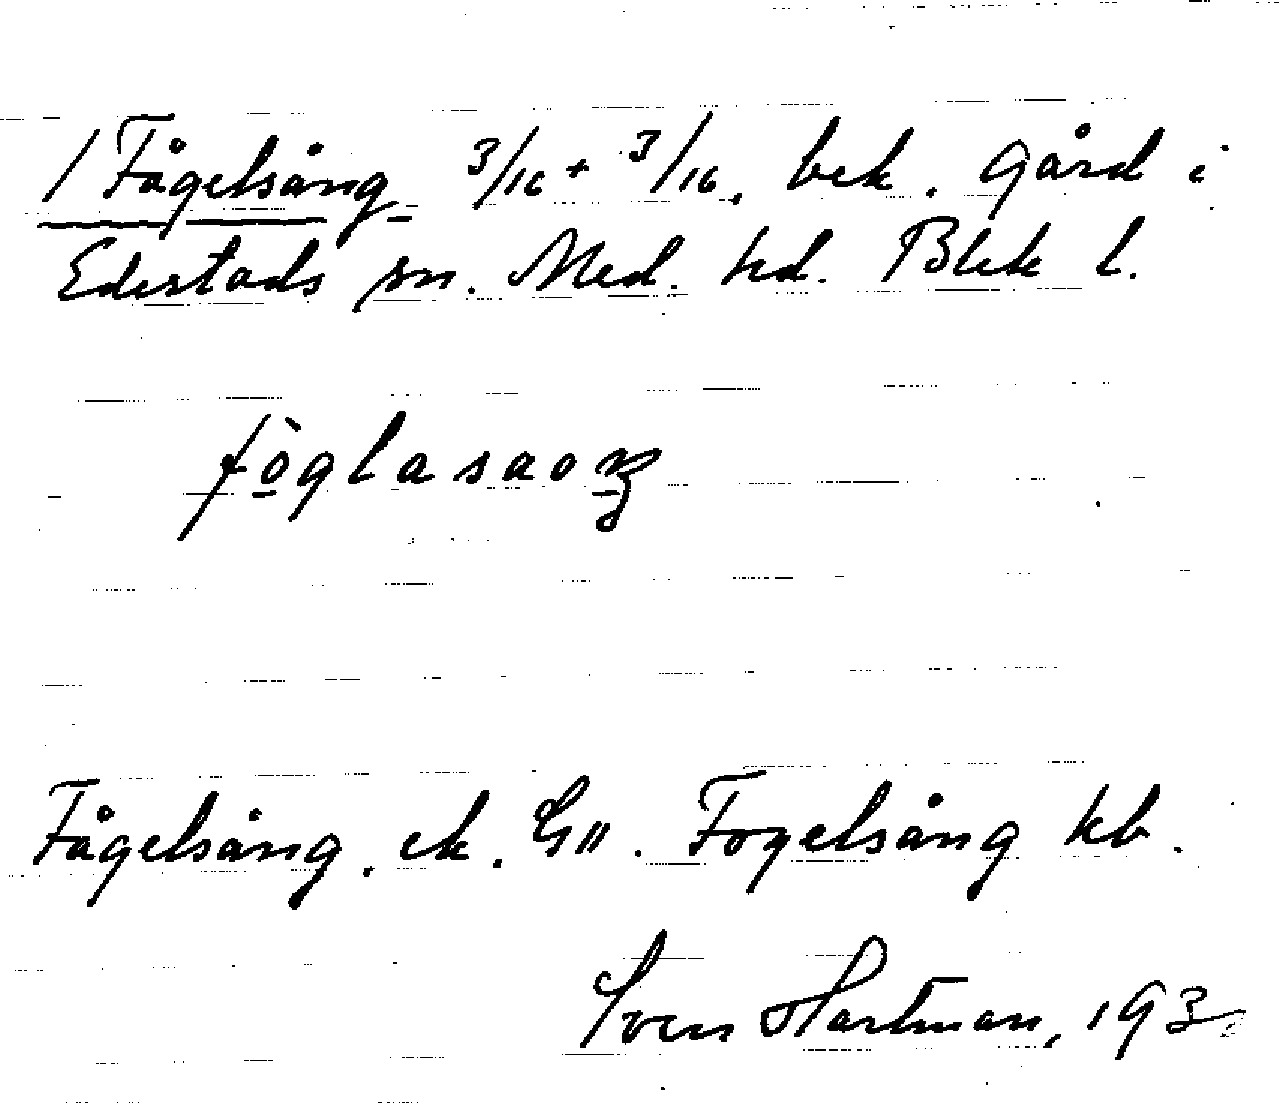 1 Fågelsång 3/16 + 3/16, bek. gård i
Edestads sn. Med. hd. Blek l.
fòglasaoŋ
Fågelsång. ek. G11. Fogelsång kb.
Sven Hartman, 193